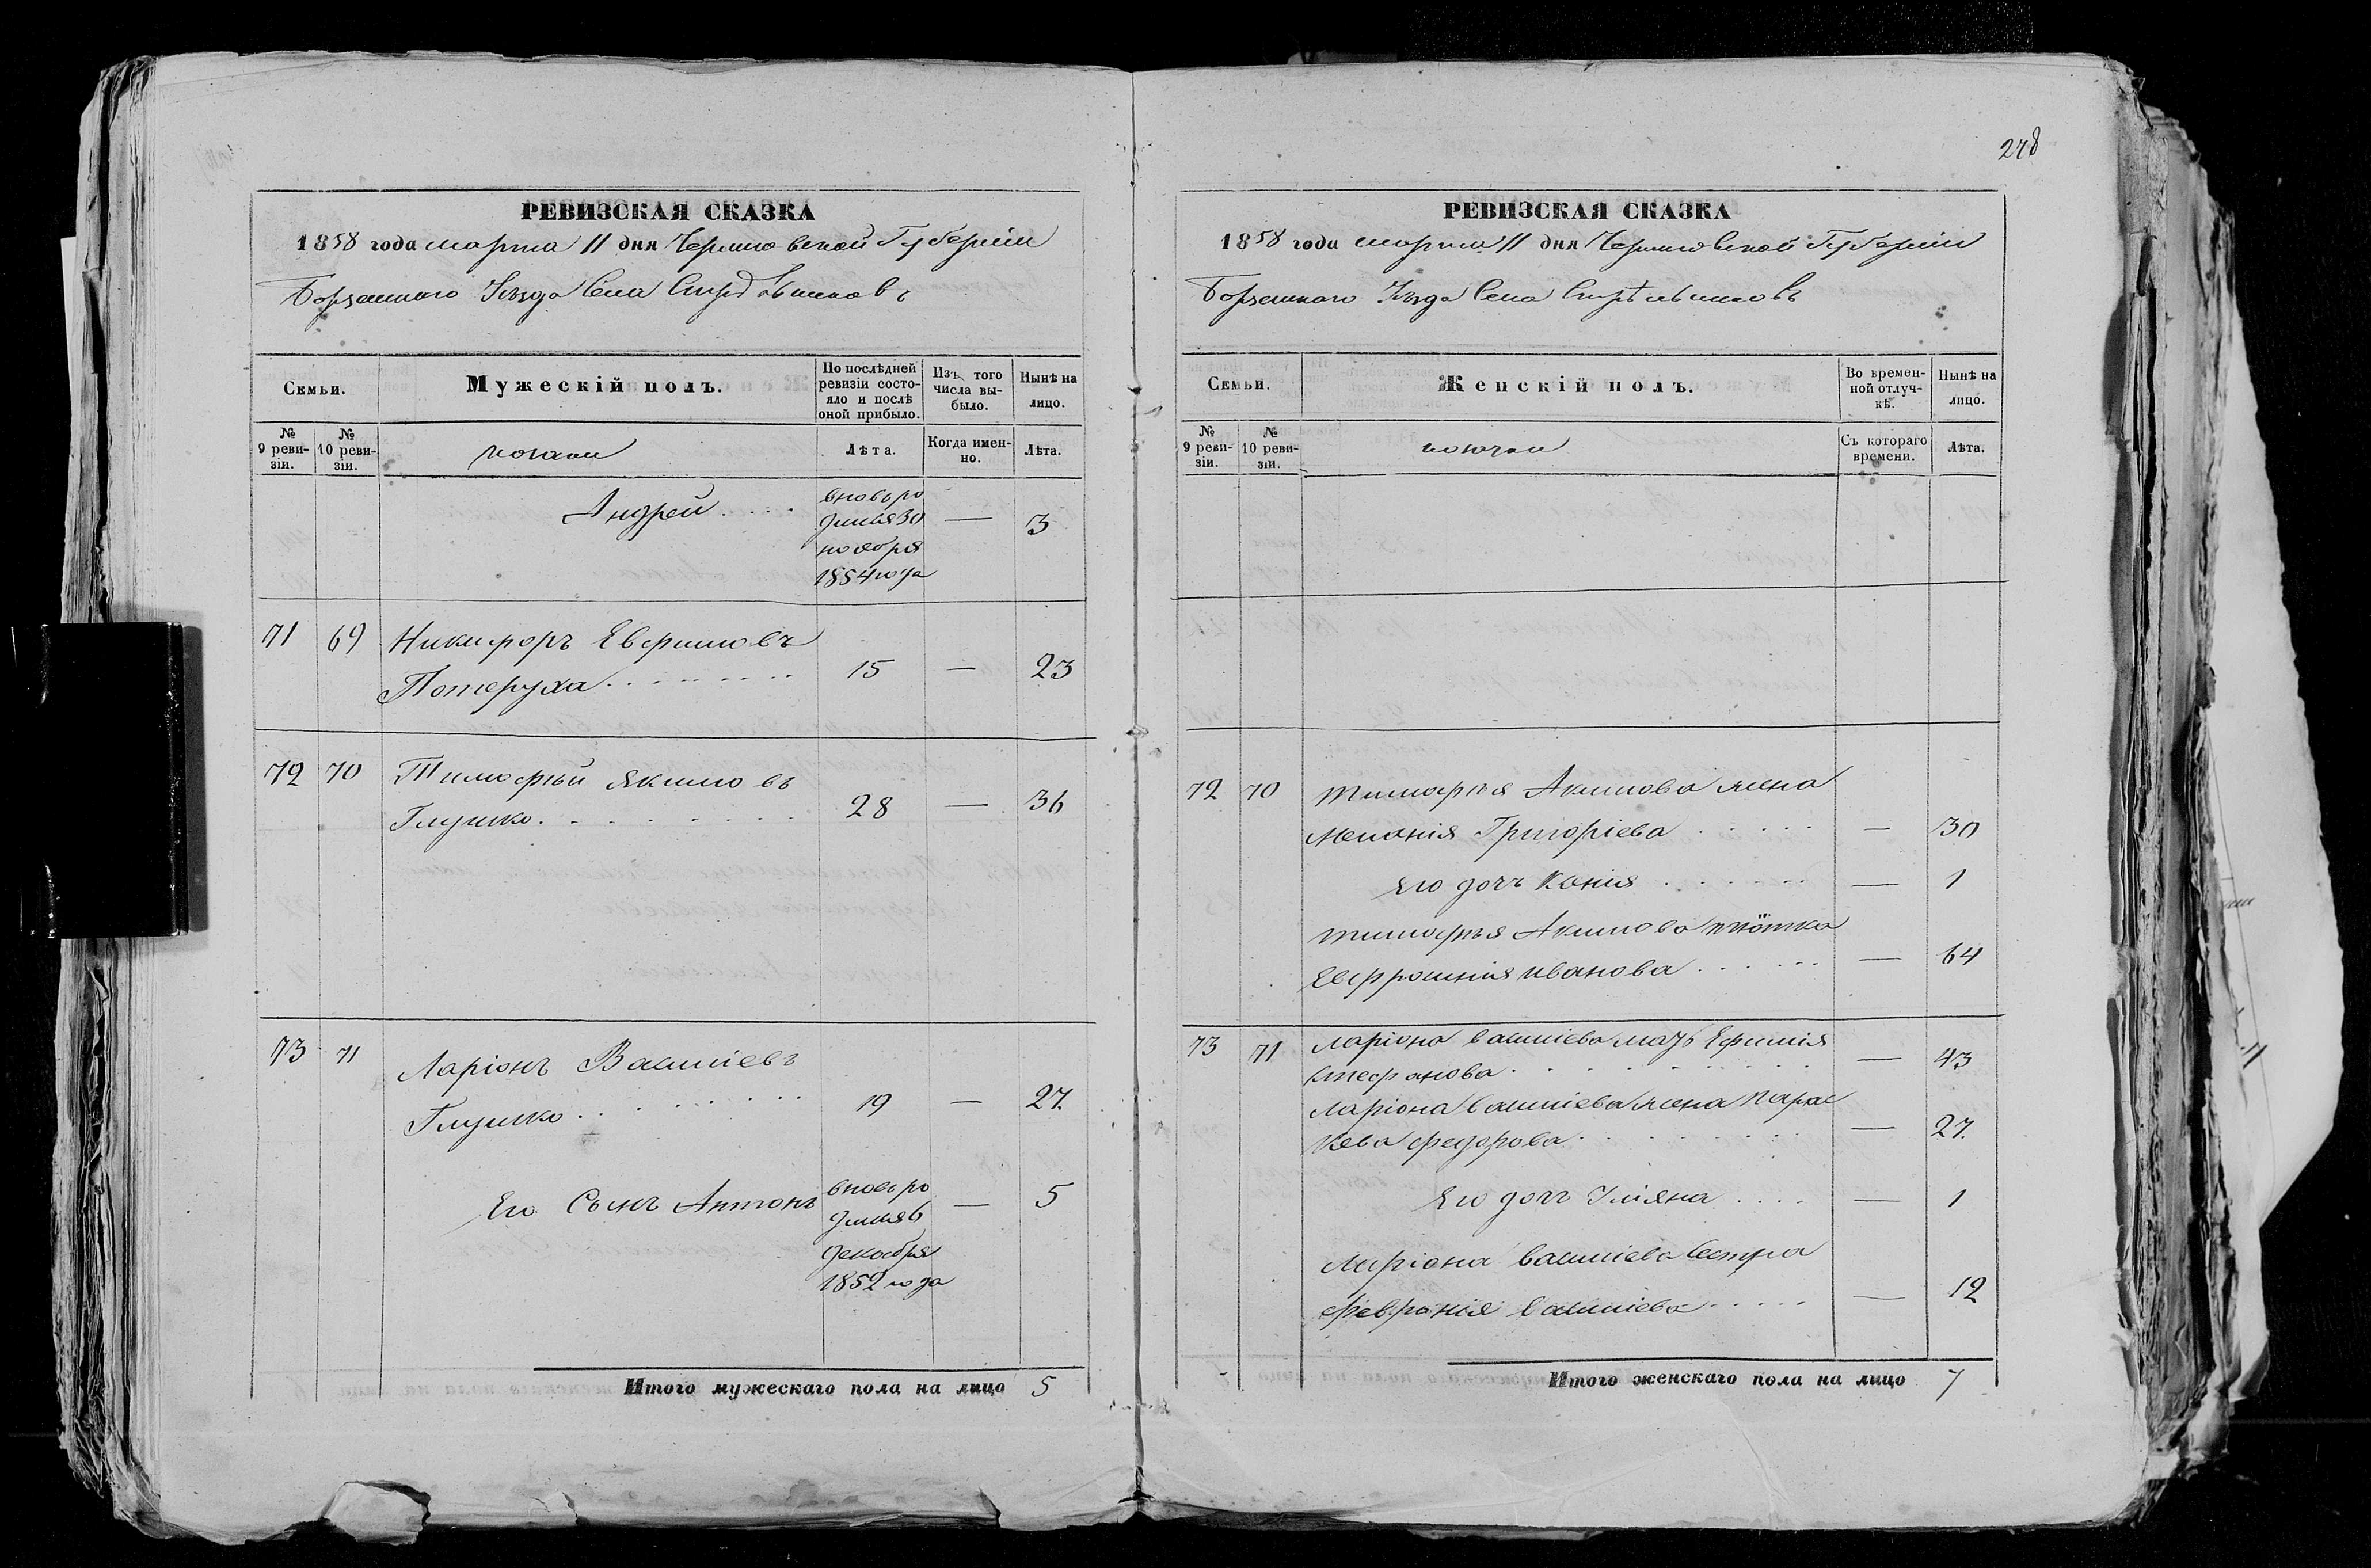 РЕВИЗСКАЯ СКАЗКА
1858 года марта 11 дня Черниговской Губерніи
Борзенскаго Уѣзда Села
Семьи.
Мужескій полъ.
По послѣдней ревизіи состояло и послѣ оной прибыло.
Изъ того числа выбыло.
Нынѣ на лицо.
№ 9 ревизіи.
№ 10 ревизіи.
Лѣта.
Когда именно.
Лѣта.
Андрей
вновь ро
дился 30
ноября
1854 года
—
3
71 69 Никифоръ Евфимовъ
Потеруха 15 — 23
72 70 Тимофѣй Якимовъ
Глушко 28 — 36
73 71 Ларіонъ Василіевъ
Глушко 19 — 27.
Его Сынъ Антонъ
вновь ро
дился 6
декабря
1852 года
—
5
Итого мужескаго пола на лицо 5
278
РЕВИЗСКАЯ СКАЗКА
1858 года марта 11 дня Черниговской Губерніи
Борзенскаго Уѣзда Села
Семьи.
Женскій полъ.
Во временной отлучкѣ.
Нынѣ на лицо.
№ 9 ревизіи.
№ 10 ревизіи.
Съ котораго времени.
Лѣта.
72 70 Тимофѣя Акимова жена
Меланія Григоріева — 30
Его дочь Ксенія — 1
Тимофѣя Акимова тіотка
Евфросинія Иванова — 64
73 71 Ларіона Василіева мать Ефимія
Стефанова — 43
Ларіона Василіева жена Парас
кева Федорова — 27.
Его дочь Уліяна — 1
Ларіона Василіева Сестра
Февронія Василіева — 12
Итого женскаго пола на лицо 7